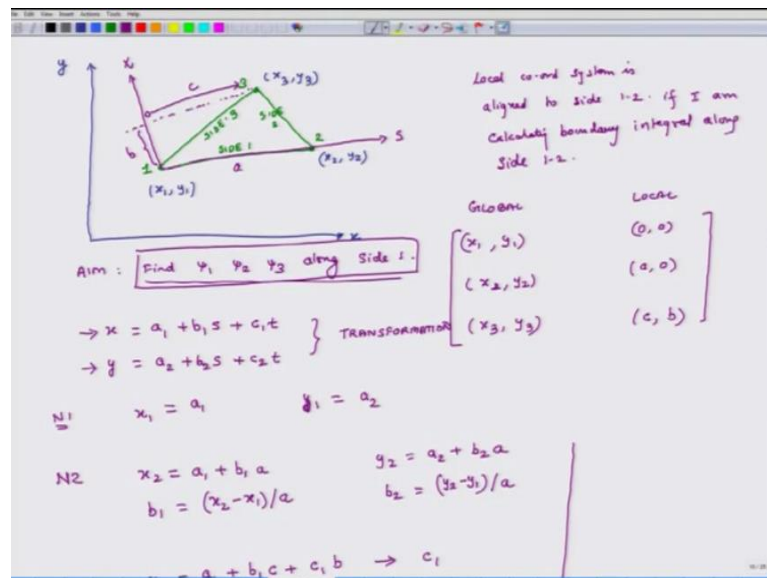 y
t
c
3 (x₃, y₃)
b
SIDE 3
SIDE 2
1
SIDE 1
2
s
a
(x₁, y₁)
(x₂, y₂)
x
Local co-ord system is
aligned to side 1-2. if I am
calculating boundary integral along
Side 1-2.
GLOBAL LOCAL
(x₁, y₁) (0, 0)
(x₂, y₂) (a, 0)
(x₃, y₃) (c, b)
Aim : Find ψ₁ ψ₂ ψ₃ along Side 1.
→ x = a₁ + b₁s + c₁t
→ y = a₂ + b₂s + c₂t
} TRANSFORMATION
N1 x₁ = a₁ y₁ = a₂
N2 x₂ = a₁ + b₁a y₂ = a₂ + b₂a
b₁ = (x₂-x₁)/a b₂ = (y₂-y₁)/a
= a₁ + b₁c + c₁b → c₁